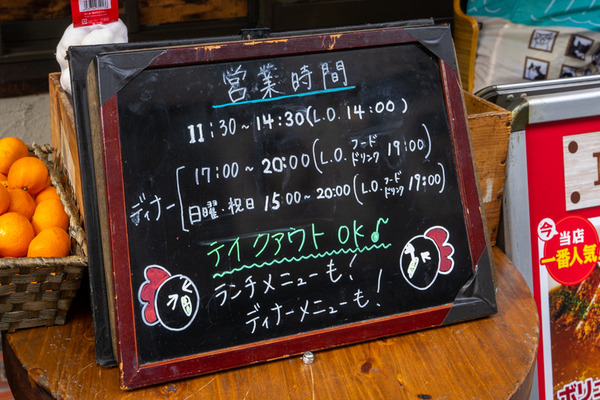 営業時間
11:30~14:30(L.O. 14:00)
17:00~20:00(L.O. フード ドリンク 19:00)
ディナー
日曜・祝日 15:00~20:00(L.O. フード ドリンク 19:00)
テイクアウト OK♪
ランチメニューも!
ディナーメニューも!
今
当店
一番人気
ボリュ